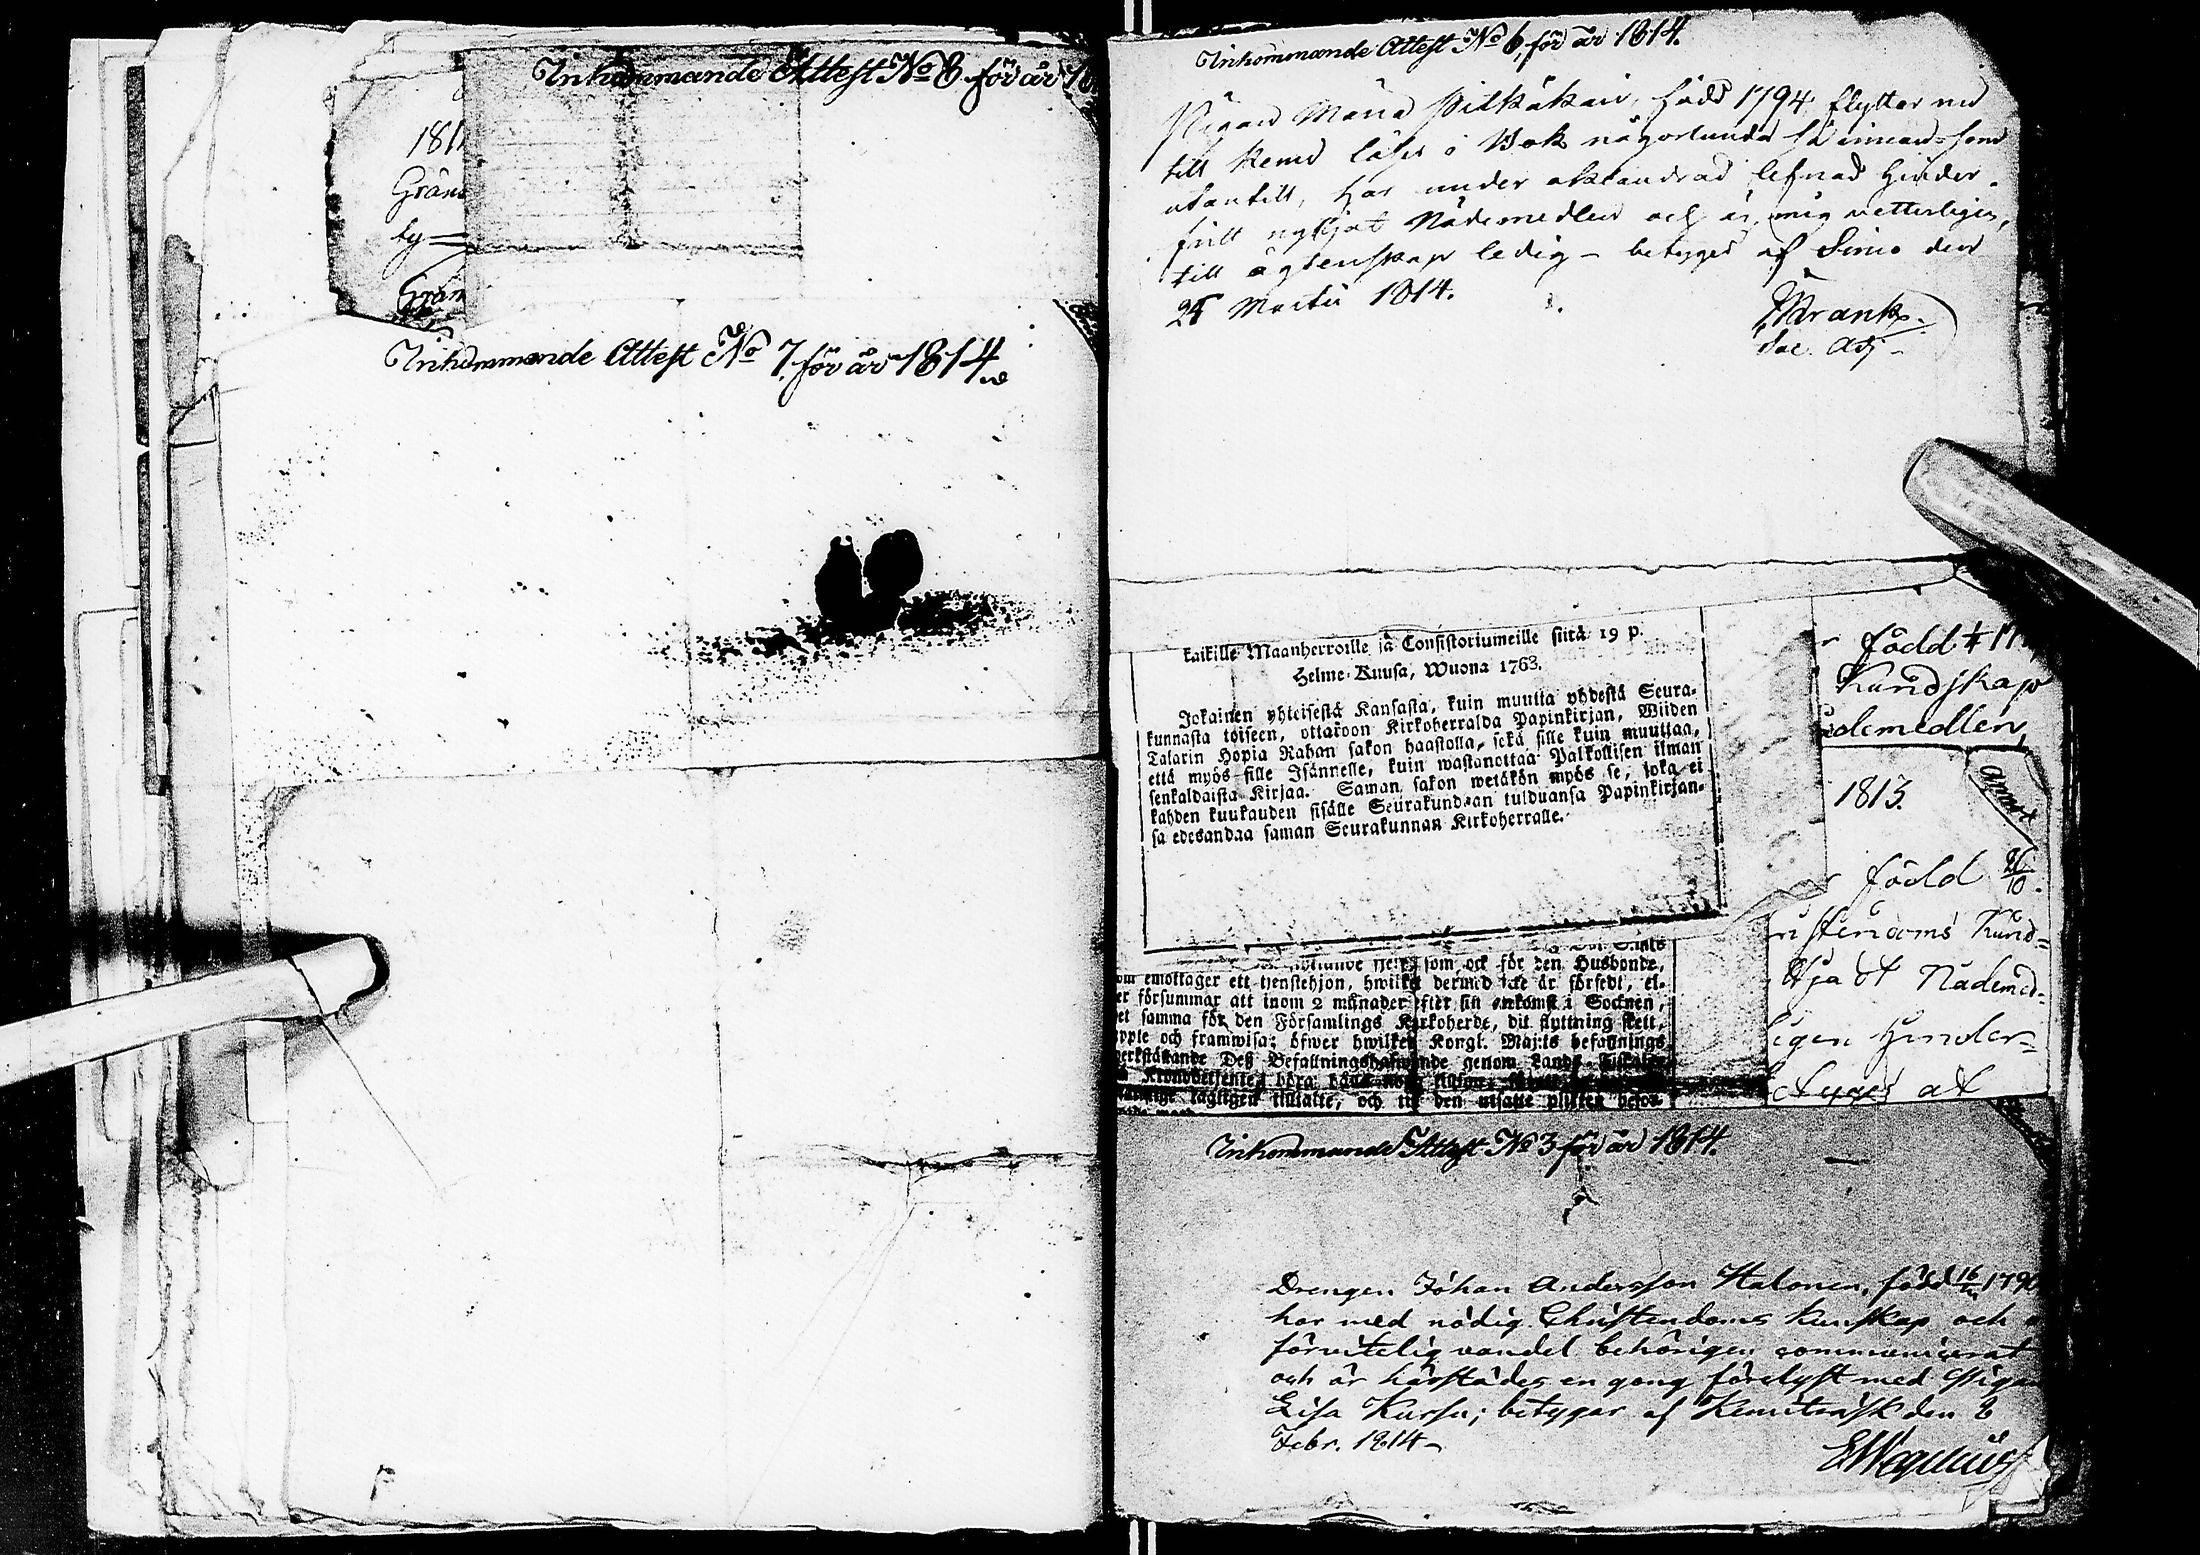 Inkommande Attest No 8 för år 18
181
Gräns
ty
Grän
Inkommande Attest No 7. för år 1814.
Inkommande Attest No 6, för år 1814.
Pigan Maria Pitkäkari, född 1794 flyttar nu
till Kemi läser i Bok någorlunda så innan- som
utantill, har under oklandrad lefnad hinder-
fritt nyttjat Nådemedlen och är, mig vetterligen,
till ägtenskap ledig - betyges af Simo den
25 Martii 1814.
Frank
Sac. Adj
kaikille Maanherroille ja Consistoriumeille siitä 19 p.
Helme-Kuusa, Wuona 1763.
Jokainen yhteisestä Kansasta, kuin muutta yhdestä Seura-
kunnasta toiseen, ottakoon Kirkoherralda Papinkirjan, Wiiden
Talarin Hopia Rahan sakon haastolla, sekä sille kuin muuttaa,
että myös sille Isännelle, kuin wastanottaa Palkollisen ilman
senkaldaista Kirjaa. Saman sakon wetäkön myös se, joka ei
kahden kuukauden sisälle Seurakundaan tulduansa Papinkirjan-
sa edesandaa saman Seurakunnan Kirkoherralle.
född 4 17
Kundskap
demedlen,
1813.
född 26/10.
ristendoms Kund-
ttjat Nådemed-
igen hinder-
etyges af
som ock för den Husbonde,
om emottager ett tjenstehjon, hwilket dermed icke är försedt, el-
er försummar att inom 2 månader efter sin ankomst i Socknen,
et samma för den Församlings Kyrkoherde, dit flyttning skett,
pple och framwisa; öfwer hwilket Kongl. Maj:ts befallnings
werkställande Deß Befallningshafwande genom Lands-Fiskaler
Kronobetjente
lagligen tilltalte, och til den utsatte plikten
Inkommande Attest No 3 för år 1814.
Drengen Johan Andersson Halonen, född 16 1790
har med nödig Christendoms kunskap och o
förvitelig vandel behörigen communicerat
och är härstädes en gång förelyst med Pigan
Lisa Kursu; betygar af Kemiträsk den 8
Febr. 1814-
E Wegelius